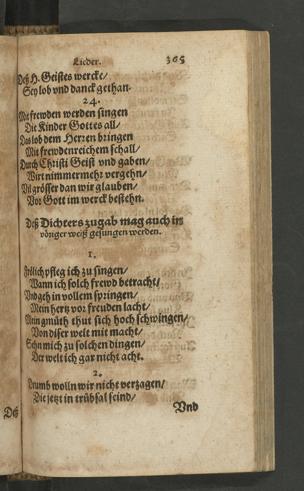 Lieder. 365
Deß H. Geistes wercke/
Sey lob vnd danck gethan.
24.
Mit frewden werden singen
Die Kinder Gottes all/
Das lob dem Herzen bringen
Mit frewdenreichem schall/
Durch Christi Geist vnd gaben/
Wirt nimmermehr vergehn/
Vil grösser dan wir glauben/
Vor Gott im werck bestehn.
Deß Dichters zugab mag auch in
voriger weiß gesungen werden.
1.
Frölich pfleg ich zu singen/
Wann ich solch frewd betracht/
Vnd geh in vollem springen/
Mein hertz vor freuden lacht/
Mein gmüth thut sich hoch schwingen/
Von diser welt mit macht/
Sehn mich zu solchen dingen/
Der welt ich gar nicht acht.
2.
Drumb wolln wir nicht verzagen/
Die jetzt in trübsal seind/
Vnd
Deß